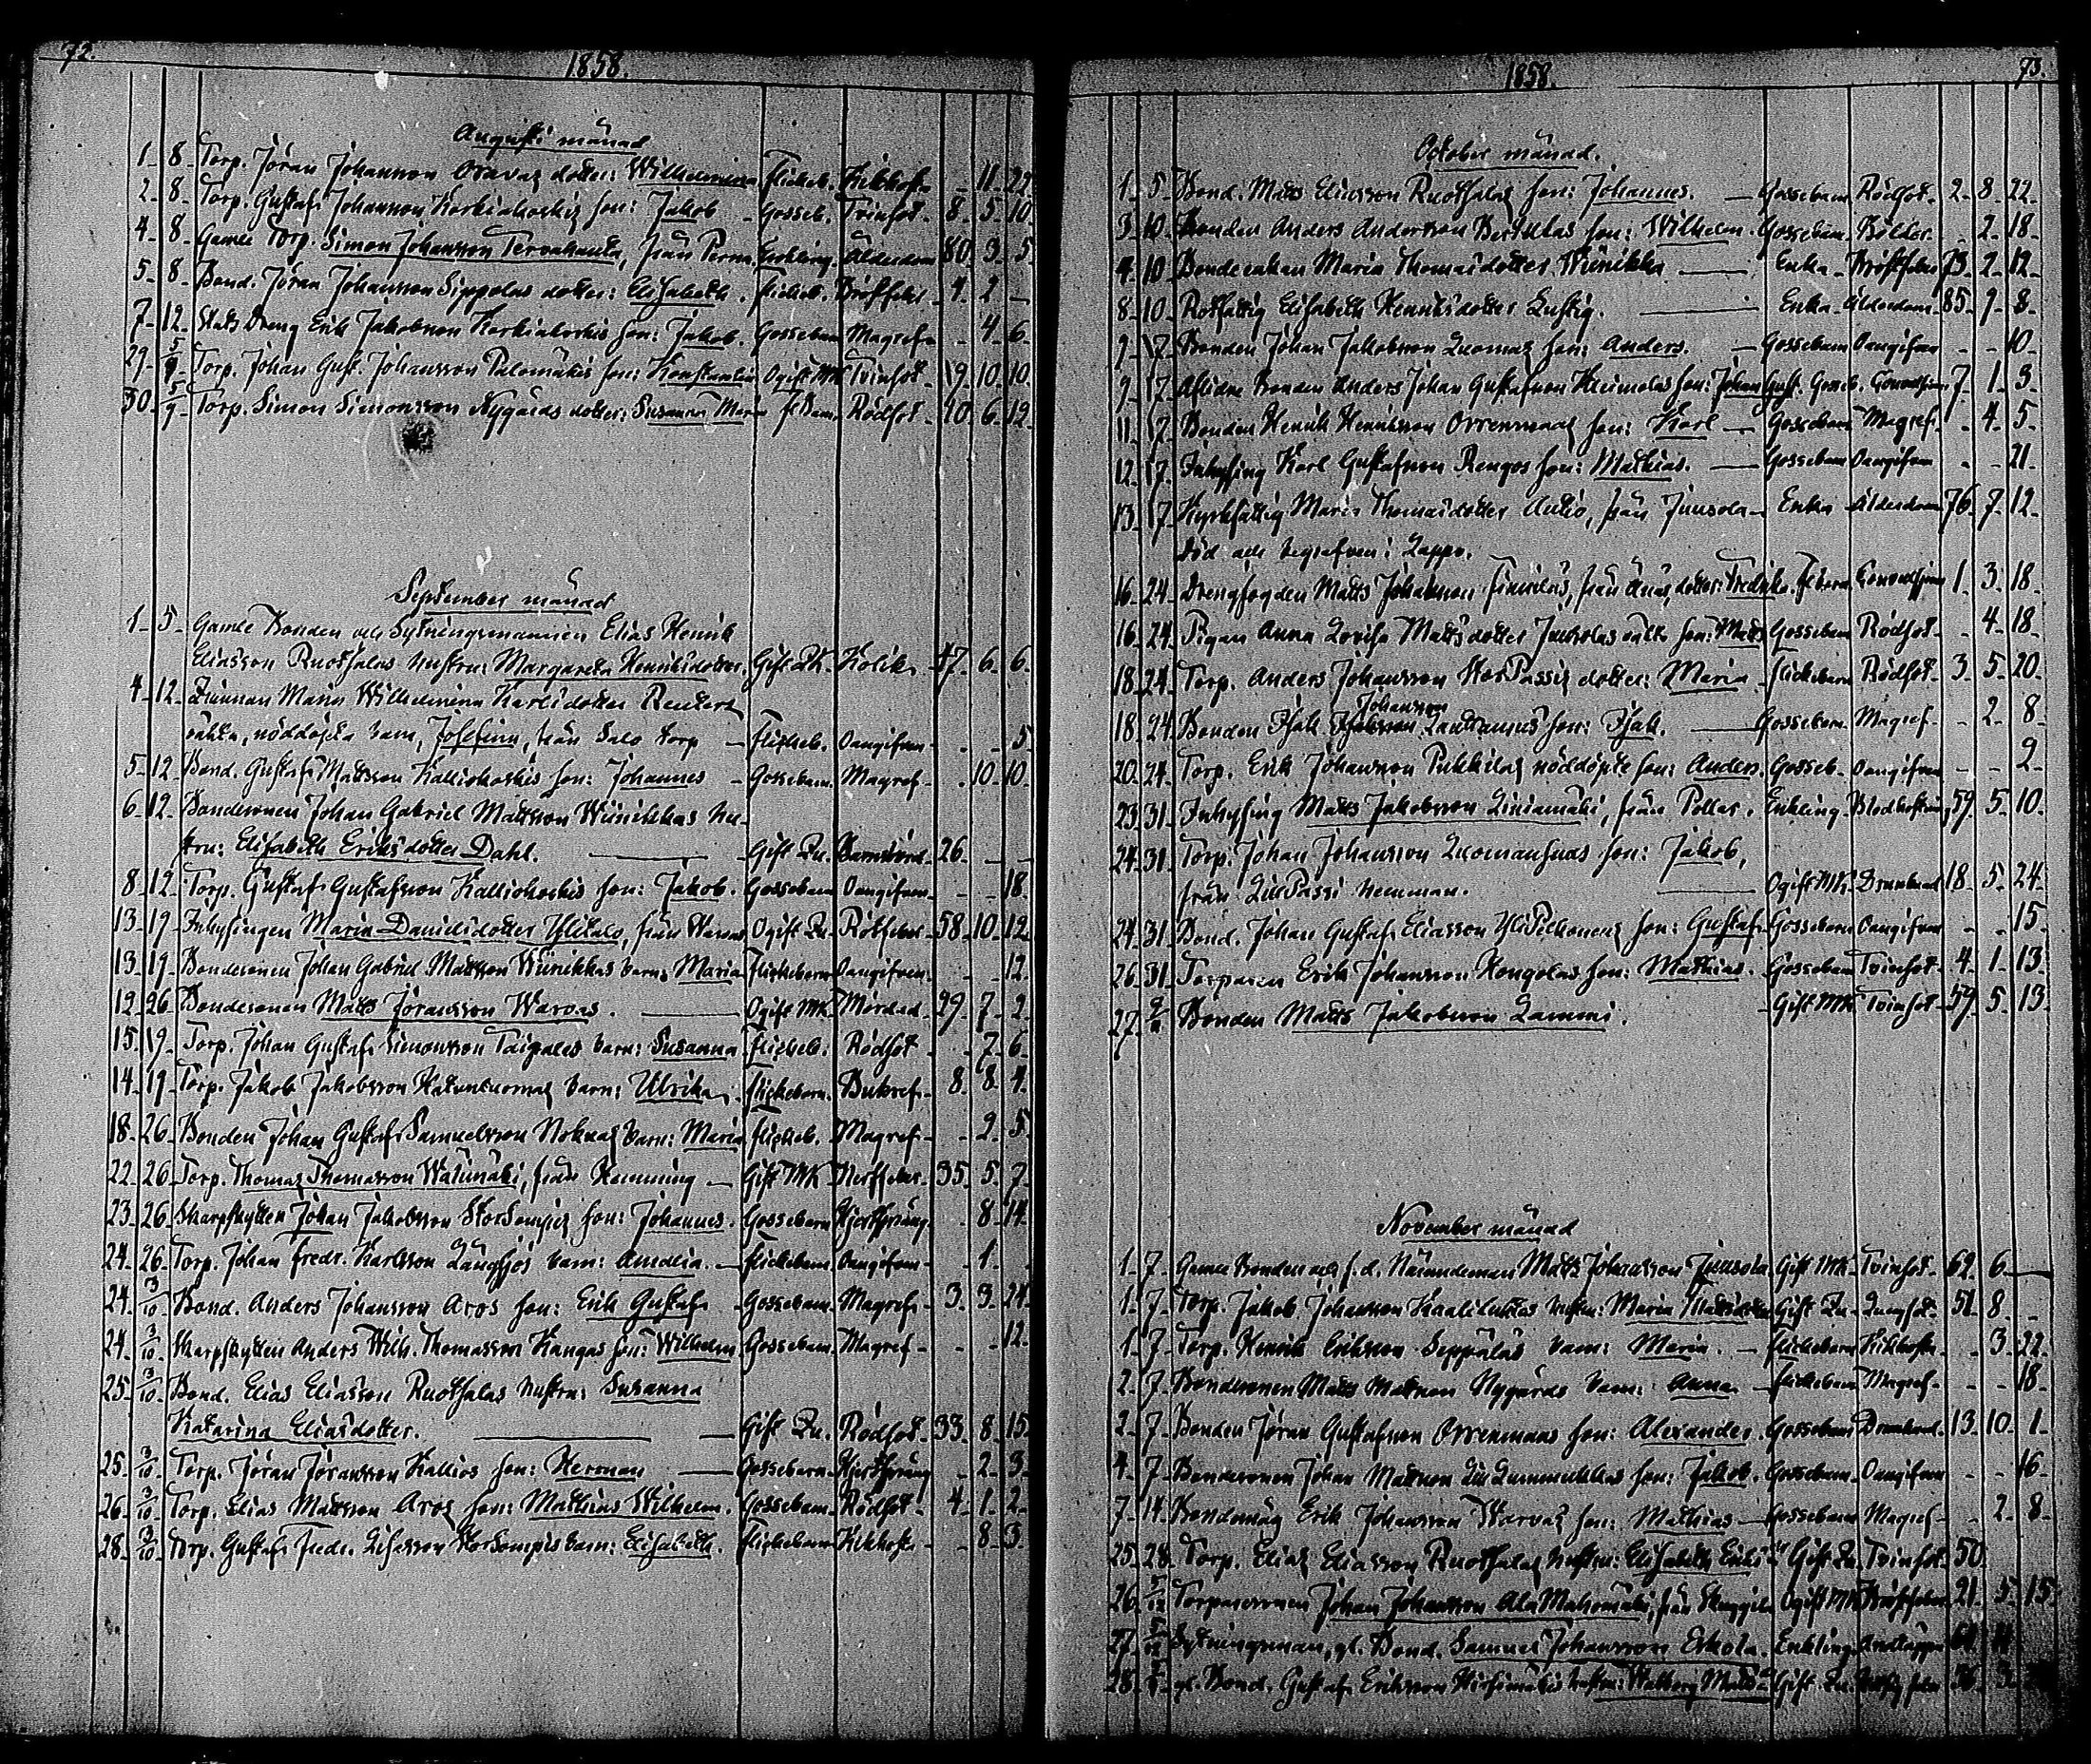 72.
1858.
Augusti månad
1 8 Torp. Jöran Johansson Oravas dotter: Wilhelmina Flickeb. Kikhosta - 11 22
2 8 Torp. Gustaf Johansson Korkiakoskis son: Jakob Gosseb. Tvinsot 8 5 10
4 8 Gamle Torp. Simon Johansson Tervahauta, från Enkling Ålderdom 80 3 5
5 8 Bond. Jöran Johansson Sippolas dotter: Elisabeth Flickeb. Bröstfeber 4 2 -
7 12 Stats Dreng Erik Jakobsson Korkiakoskis son: Jakob Gossebarn Magref. - 4 6
29 5/9 Torp. Johan Gust. Johansson Palomäkis son: Konstantin Ogift MK Tvinsot 19 10 10
30 5/9 Torp. Simon Simonsson Nygårds dotter: Susanna Maria fl. Barn Rödsot 10 6 12
September månad
1 5 Gamle Bonden och Sytningsmannen Elias Henrik
Eliasson Ruotsalas hustru: Margareta Henriksdotter Gift Qv. Kolik 47 6 6
4 12 Qvinnan Maria Wilhelmina Karlsdotter
oäkta, nöddöpta barn, Josefina, från Salo torp Flickeb. Oangifven - - 5
5 12 Bond. Gustaf Mattsson Kalliokoskis son: Johannes Gossebarn Magref - 10 10
6 12 Bondesonen Johan Gabriel Mattsson Wiinikkas hu-
stru: Elisabeth Eriksdotter Dahl. Gift Qv. Barnsbörd 26 - -
8 12 Torp. Gustaf Gustafsson Kalliokoskis son: Jakob. Gossebarn Oangifven - - 18
13 19 Inhysingen Maria Danielsdotter Ylitalo, från Ogift Qv. Rötfeber 58 10 12
13 19 Bondesonen Johan Gabriel Mattsson Wiinikkas barn: Maria Flickebarn Oangifven - - 12
12 26 Bondesonen Matts Jöransson Warvas. Ogift MK Mördad 29 7 2
15 19 Torp. Johan Gustaf Simonsson Taipales barn: Susanna Flickeb. Rödsot - 7 6
14 19 Torp. Jakob Jakobsson barn: Ulrika Flickebarn Bukref. 8 8 4
18 26 Bonden Johan Gustaf Samuelsson barn: Maria flickeb. Magref - 2 5
22 26 Torp. Thomas Thomasson, från Gift MK Nerffeber 35 5 7
23 26 Skarpskytten Johan Jakobsson Storsompis son: Johannes Gossebarn Hjertsprång - 8 14
24 26 Torp. Johan Fredr. Karlsson Långsjös barn: Amalia. Flickebarn Oangifven - 1 -
24 3/10 Bond. Anders Johansson Aros son: Erik Gustaf Gossebarn Magref 3 3 24
24 3/10 Skarpskytten Anders Wilh. Thomasson Kangas son: Wilhelm Gossebarn Magref - - 12
25 3/10 Bond. Elias Eliasson Ruotsalas hustru: Susanna
Katarina Eliasdotter. Gift Qv. Rödsot 33 8 15
25 3/10 Torp. Jöran Jöransson Kallios son: Herman Gossebarn Hjertsprång - 2 3
26 3/10 Torp. Elias Mattsson Aros son: Mathias Wilhelm. Gossebarn Rödsot 4 1 2
28 3/10 Torp. Gustaf Fredr. Storsompis barn: Elisabeth. Flickebarn Kikhosta - 8 3
73.
1858.
October månad.
1 5 Bond. Matts Eliasson Ruotsalas son: Johannes. Gossebarn Rödsot 2 8 22
3 10 Bonden Anders Andersson son: Wilhelm. Gossebarn Bölder - 2 18
4 10 Bondeenkan Maria Thomasdotter Wiinikka Enka Bröstfeber 73 2 12
8 10 Rotfattig Elisabeth Henriksdotter Lustig. Enka Ålderdom 85 9 8
9 17 Bonden Johan Jakobsson Luomas son: Anders. Gossebarn Oangifven - - 10
9 17 Aflidne Bonden Anders Johan Gustafsson son: Johan Gust. Gosseb. 7 1 3
11 17 Bonden Henrik Henriksson Orrenmaas son: Karl Gossebarn Magref - 4 5
12 17 Inhysing Karl Gustafsson Rengos son: Mathias. Gossebarn Oangifven - - 21
13 17 Kyrkfattig Maria Thomasdotter Autio, från Juusola Enka Ålderdom 76 7 12
död och begrafven i Lappo.
16 24 Drengfogden Matts Johansson, från, dotter: Fredrika Fl. barn 1 3 18
16 24 Pigan Anna Lovisa Mattsdotter oäkta son: Matts Gossebarn Rödsot - 4 18
18 24 Torp. Anders Johansson StorPassis dotter: Maria flickebarn Rödsot 3 5 20
Johansson
18 24 Bonden Isak Lauttamus son: Isak. Gossebarn Magref - 2 8
20 24 Torp. Erik Johansson Pukkilas nöddöpte son: Anders. Gosseb. Oangifven - - 2
23 31 Inhysing Matts Jakobsson Liniamäki, från Enkling 59 5 10
24 31 Torp. Johan Johansson Luomansuus son: Jakob,
från LillPassi hemman. Ogift MK Drunknad 18 5 24
24 31 Bond. Johan Gustaf Eliasson son: Gustaf Gossebarn Oangifven - - 15
26 31 Torparen Erik Johansson Kongolas son: Mathias. Gossebarn Tvinsot 4 1 13
27 Bonden Matts Jakobsson Lammi. Gift MK Tvinsot 59 5 13
November månad
1 7 Gamle Bonden och f.d. Nämndeman Matts Johansson Juusola Gift MK Tvinsot 62 6 -
1 7 Torp. Jakob Johansson hustru: Maria Mattsdotter Gift Qv. Lungsot 51 8 -
1 7 Torp. Henrik Eriksson Seppäläs barn: Maria. flickebarn Kikhosta - 3 22
2 7 Bondesonen Matts Mattsson Nygårds barn: Anna flickebarn Magref - - 18
2 7 Bonden Jöran Gustafsson Orrenmaas son: Alexander. Gossebarn Drunknad 13 10 1
4 7 Bondesonen Johan Mattsson son: Jakob. Gossebarn Oangifven - - 16
7 14 Bondemåg Erik Johansson Warvas son: Mathias Gossebarn Magref - 2 8
25 28 Torp. Elias Eliasson Ruotsalas hustru: Elisabeth Gift Qv. Tvinsot 50
26 5/12 Torparesonen Johan Johansson, från Ogift MK Bröstfeber 21 5 15
27 5/12 Sytningsman, gl. Bond. Samuel Johansson Erkola. Enkling Andtäppa
28 gl. Bond. Gustaf Eriksson hustru: Walborg Gift Qv.